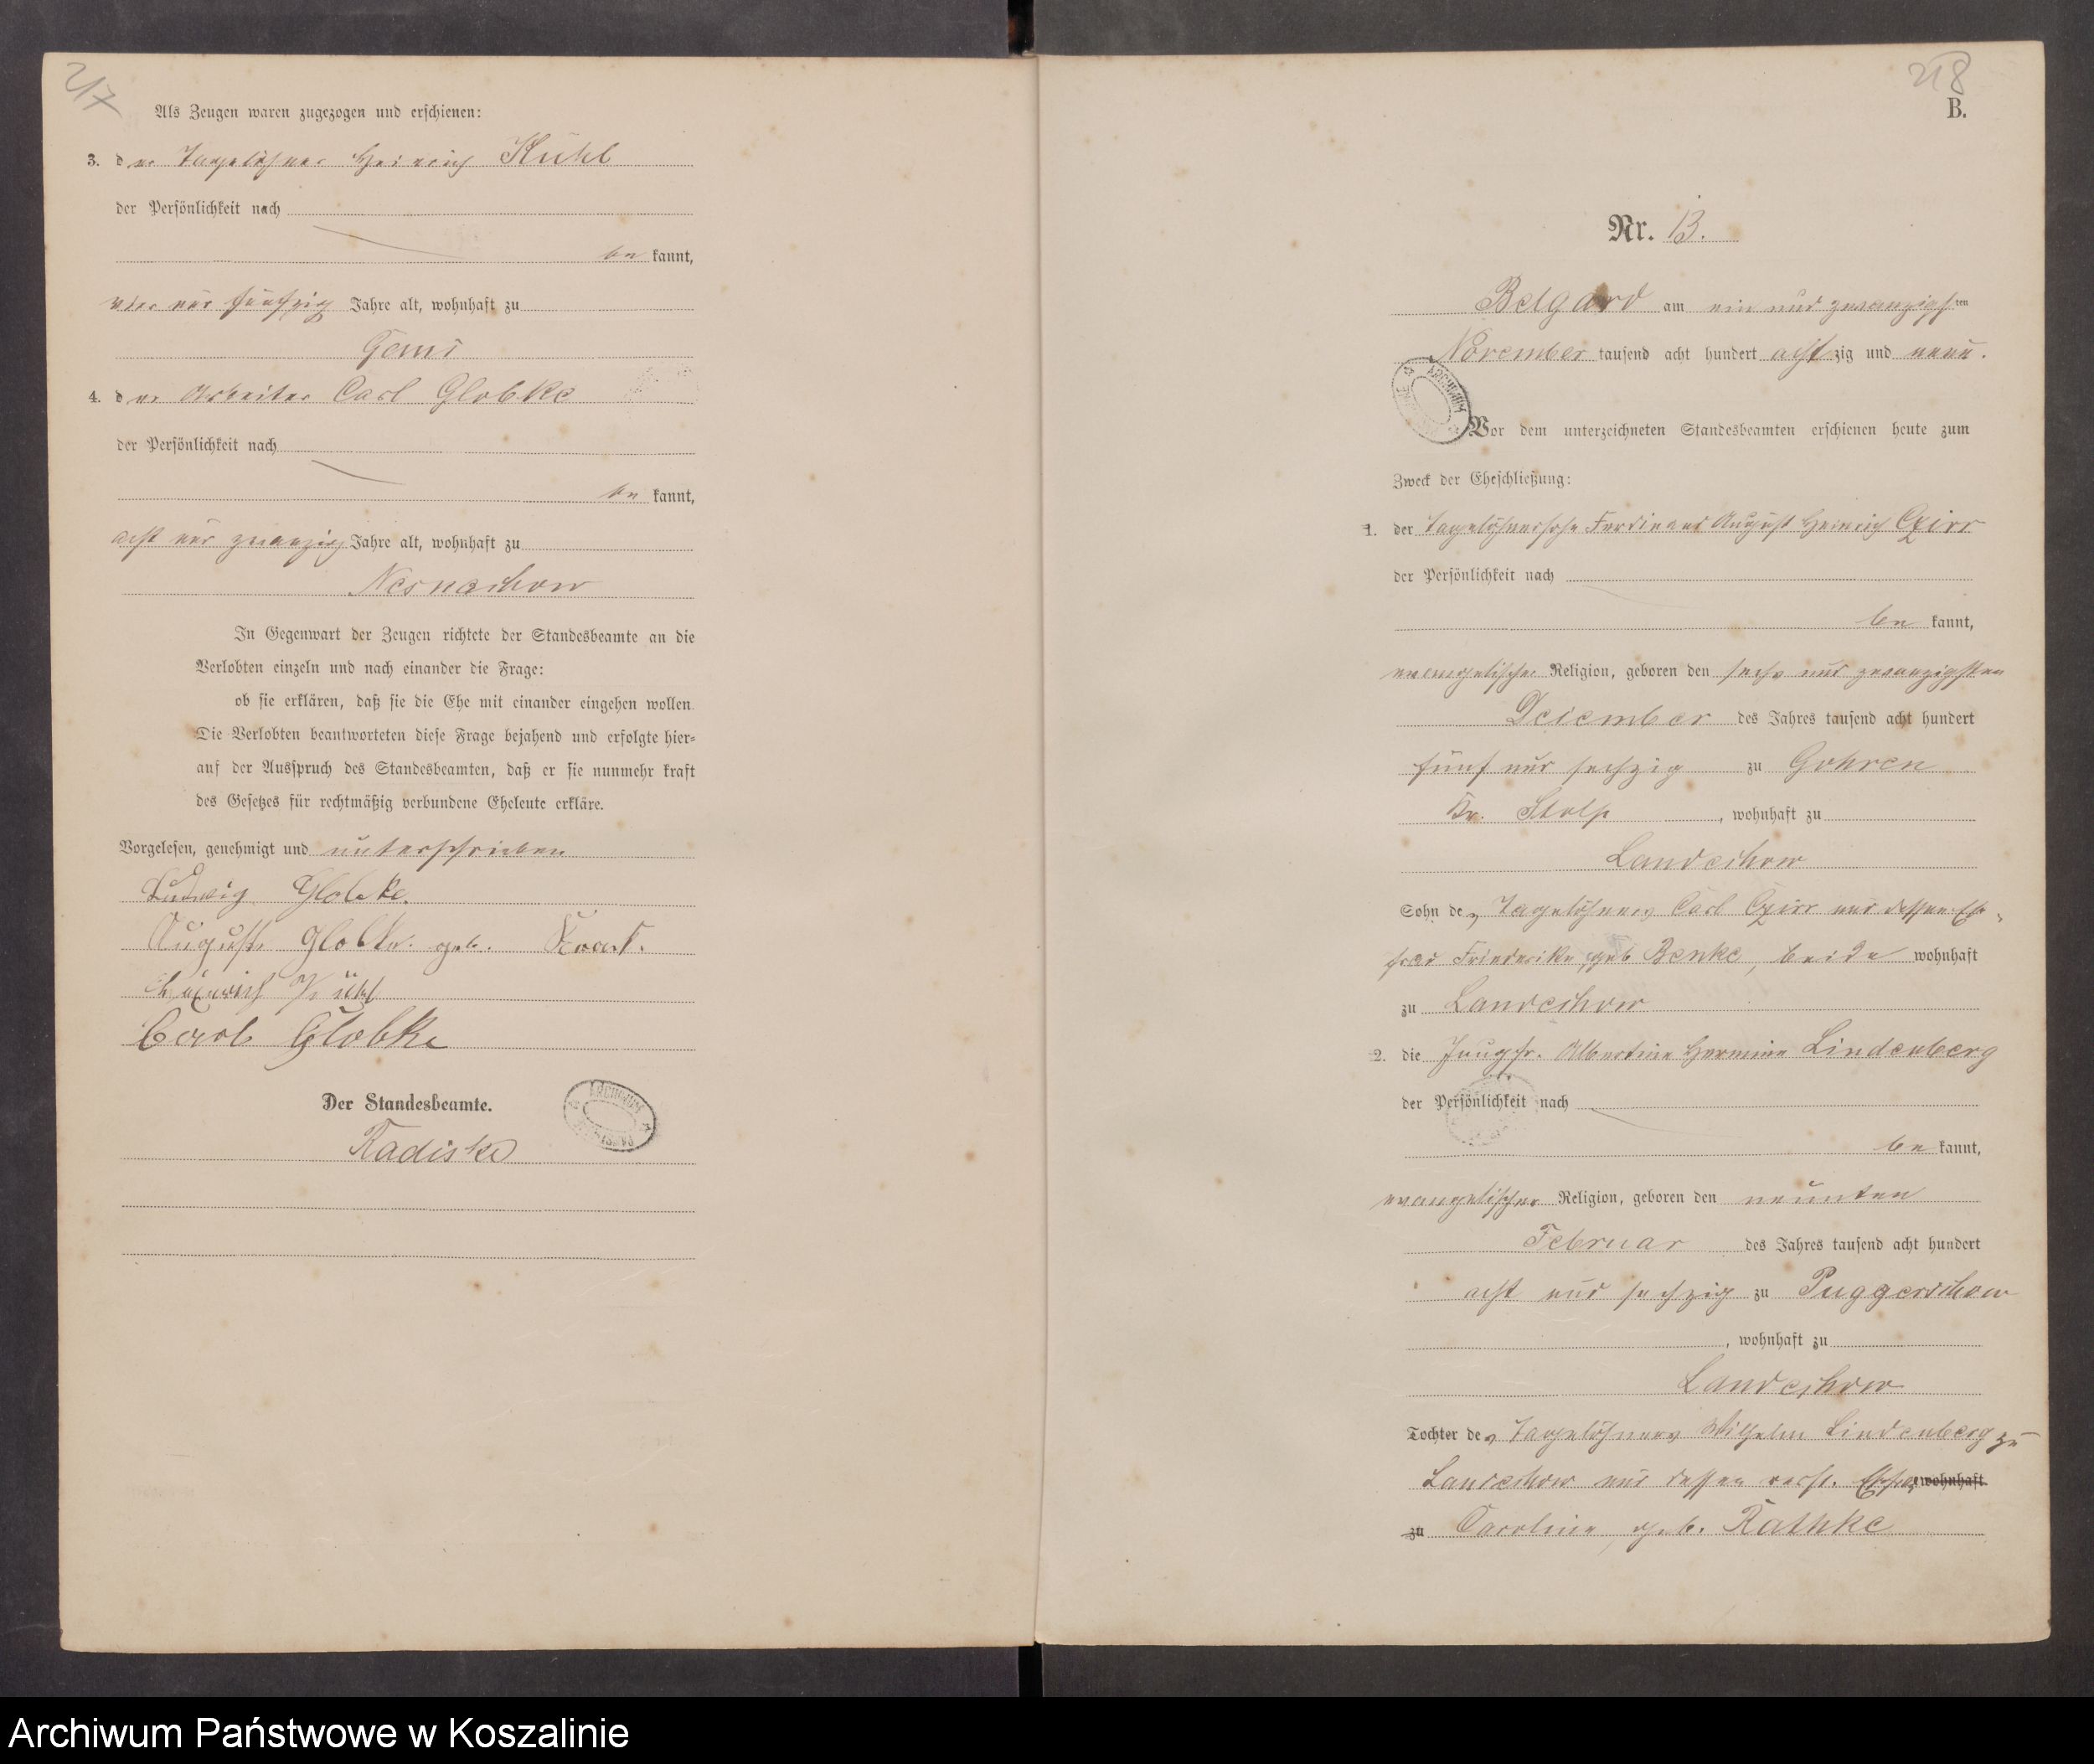 217
Als Zeugen waren zugezogen und erschienen:
3. der Tagelöhner Heinrich Kühl
der Persönlichkeit nach
be kannt,
vier und fünfzig Jahre alt, wohnhaft zu
Gans
4. der Arbeiter Carl Globke
der Persönlichkeit nach
be kannt,
acht und zwanzig Jahre alt, wohnhaft zu
Nesnachow
In Gegenwart der Zeugen richtete der Standesbeamte an die
Verlobten einzeln und nach einander die Frage:
ob sie erklären, daß sie die Ehe mit einander eingehen wollen.
Die Verlobten beantworteten diese Frage bejahend und erfolgte hier-
auf der Ausspruch des Standesbeamten, daß er sie nunmehr kraft
des Gesetzes für rechtmäßig verbundene Eheleute erkläre.
Vorgelesen, genehmigt und unterschrieben
Ludwig Globke.
Auguste Globke geb.
Heinrich Kühl
Carl Globke
Der Standesbeamte.
Radiske
ARCHIWUM
218
B.
Nr. 13.
Belgard am ein und zwanzigsten
November tausend acht hundert achtzig und neun.
ARCHIWUM
Vor dem unterzeichneten Standesbeamten erschienen heute zum
Zweck der Eheschließung:
1. der Tagelöhnersohn Ferdinand August Heinrich Czirr
der Persönlichkeit nach
be kannt,
evangelischer Religion, geboren den sechs und zwanzigsten
Dezember des Jahres tausend acht hundert
fünf und sechzig zu Gohren
Kr. Stolp, wohnhaft zu
Landechow
Sohn des Tagelöhners Carl Czirr und dessen Ehe-
frau Friederike, geb Benke, beide wohnhaft
zu Landechow
2. die Jungfr. Albertine Hermine Lindenberg
der Persönlichkeit nach
be kannt,
evangelischer Religion, geboren den neunten
Februar des Jahres tausend acht hundert
acht und sechzig zu Puggerschow
, wohnhaft zu
Landechow
Tochter des Tagelöhners Wilhelm Lindenberg zu
Landechow und dessen verst. Ehefrau wohnhaft
zu Caroline, geb. Rathke
Archiwum Państwowe w Koszalinie